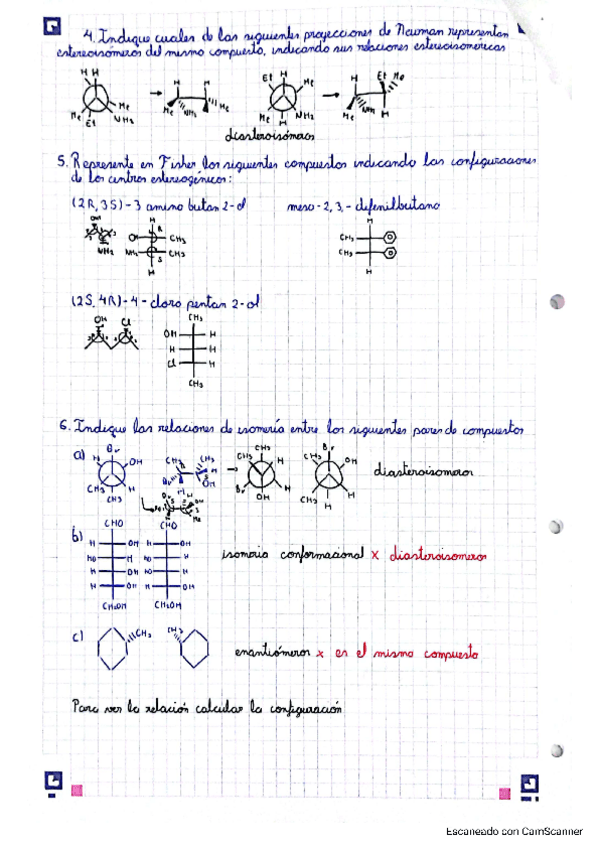 4. Indique cuales de las siguientes proyecciones de Newman representan
estereoisómeros del mismo compuesto, indicando sus relaciones estereoisomericas
H H
Me
Me
Et
NH₂
H
H
Me
NH₂
Me
Et
H
Me
Me
H
NH₂
H
Et
Me
Me
NH₂
H
diasteroisómeros
5. Represente en Fisher los siguientes compuestos indicando las configuraciones
de los centros estereogénicos:
(2R, 3S) - 3 amino butan 2-ol
meso - 2, 3, - difenilbutano
OH
NH₂
H
R
OH
CH₃
NH₂
CH₃
S
H
H
CH₃
CH₃
H
(2S, 4R) - 4 - cloro pentan 2-ol
OH
Cl
CH₃
OH
H
H
H
Cl
H
CH₃
6. Indique las relaciones de isomería entre los siguientes pares de compuestos
a)
Br
H
OH
CH₃
H
CH₃
CH₃
CH₃
OH
H
CH₃
CH₃
H
Br
H
OH
Br
CH₃
OH
CH₃
H
H
diasteroisomeros
b)
CHO
CHO
H
OH
H
OH
HO
H
HO
H
H
OH
HO
H
H
OH
H
OH
CH₂OH
CH₂OH
isomeria conformacional x diasteroisomeros
c)
CH₃
CH₃
enantiómeros x es el mismo compuesto
Para ver la relación calcular la configuración
Escaneado con CamScanner